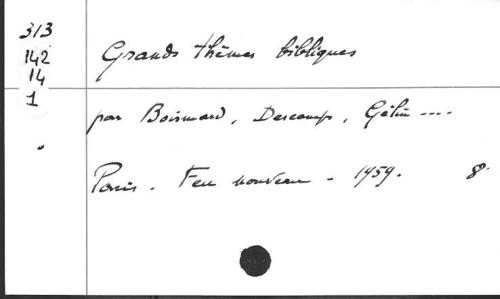 313
142
14
1
Grands thèmes bibliques
par Boismard, Descamps, Gélin ....
Paris. Feu nouveau - 1959. 8°